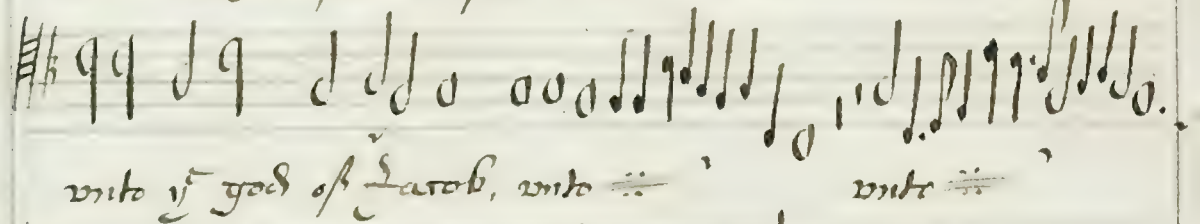 vnto yͤ god of Jacob, vnto :||: vnto :||: